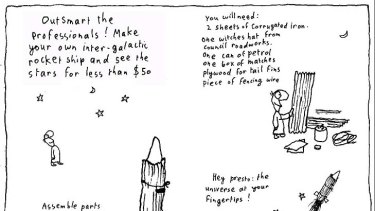 Outsmart the
Professionals! Make
your own inter-galactic
rocket ship and see the
stars for less than $50
You will need:
2 sheets of corrugated iron.
one witches hat from
council roadworks.
one can of petrol
one box of matches
plywood for tail fins
piece of fencing wire
Assemble parts
Hey presto: the
universe at your
fingertips!